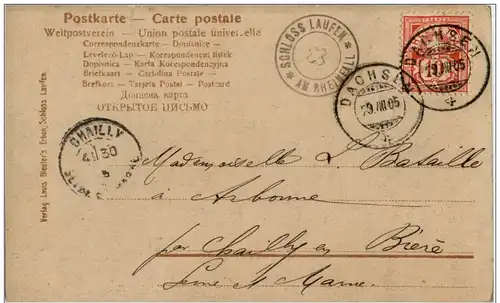 Postkarte — Carte postale
Weltpostverein — Union postale universelle
Correspondenzkarte — Dopisnice —
Levelező-Lap — Korespondenční lístek
Dopisnica — Karta Korespondencyjna
Briefkaart — Cartolina Postale —
Brefkort — Tarjeta Postal — Postcard
Дописна карта
ОТКРЫТОЕ ПИСЬМО
SCHLOSS LAUFEN
AM RHEINFALL
DACHSEN
DACHSEN
CHAILLY
Verlag Louis Bleuler's Erben, Schloss Laufen
Mademoiselle L. Bataille
à Arbonne
par Chailly en Bière
Seine et Marne